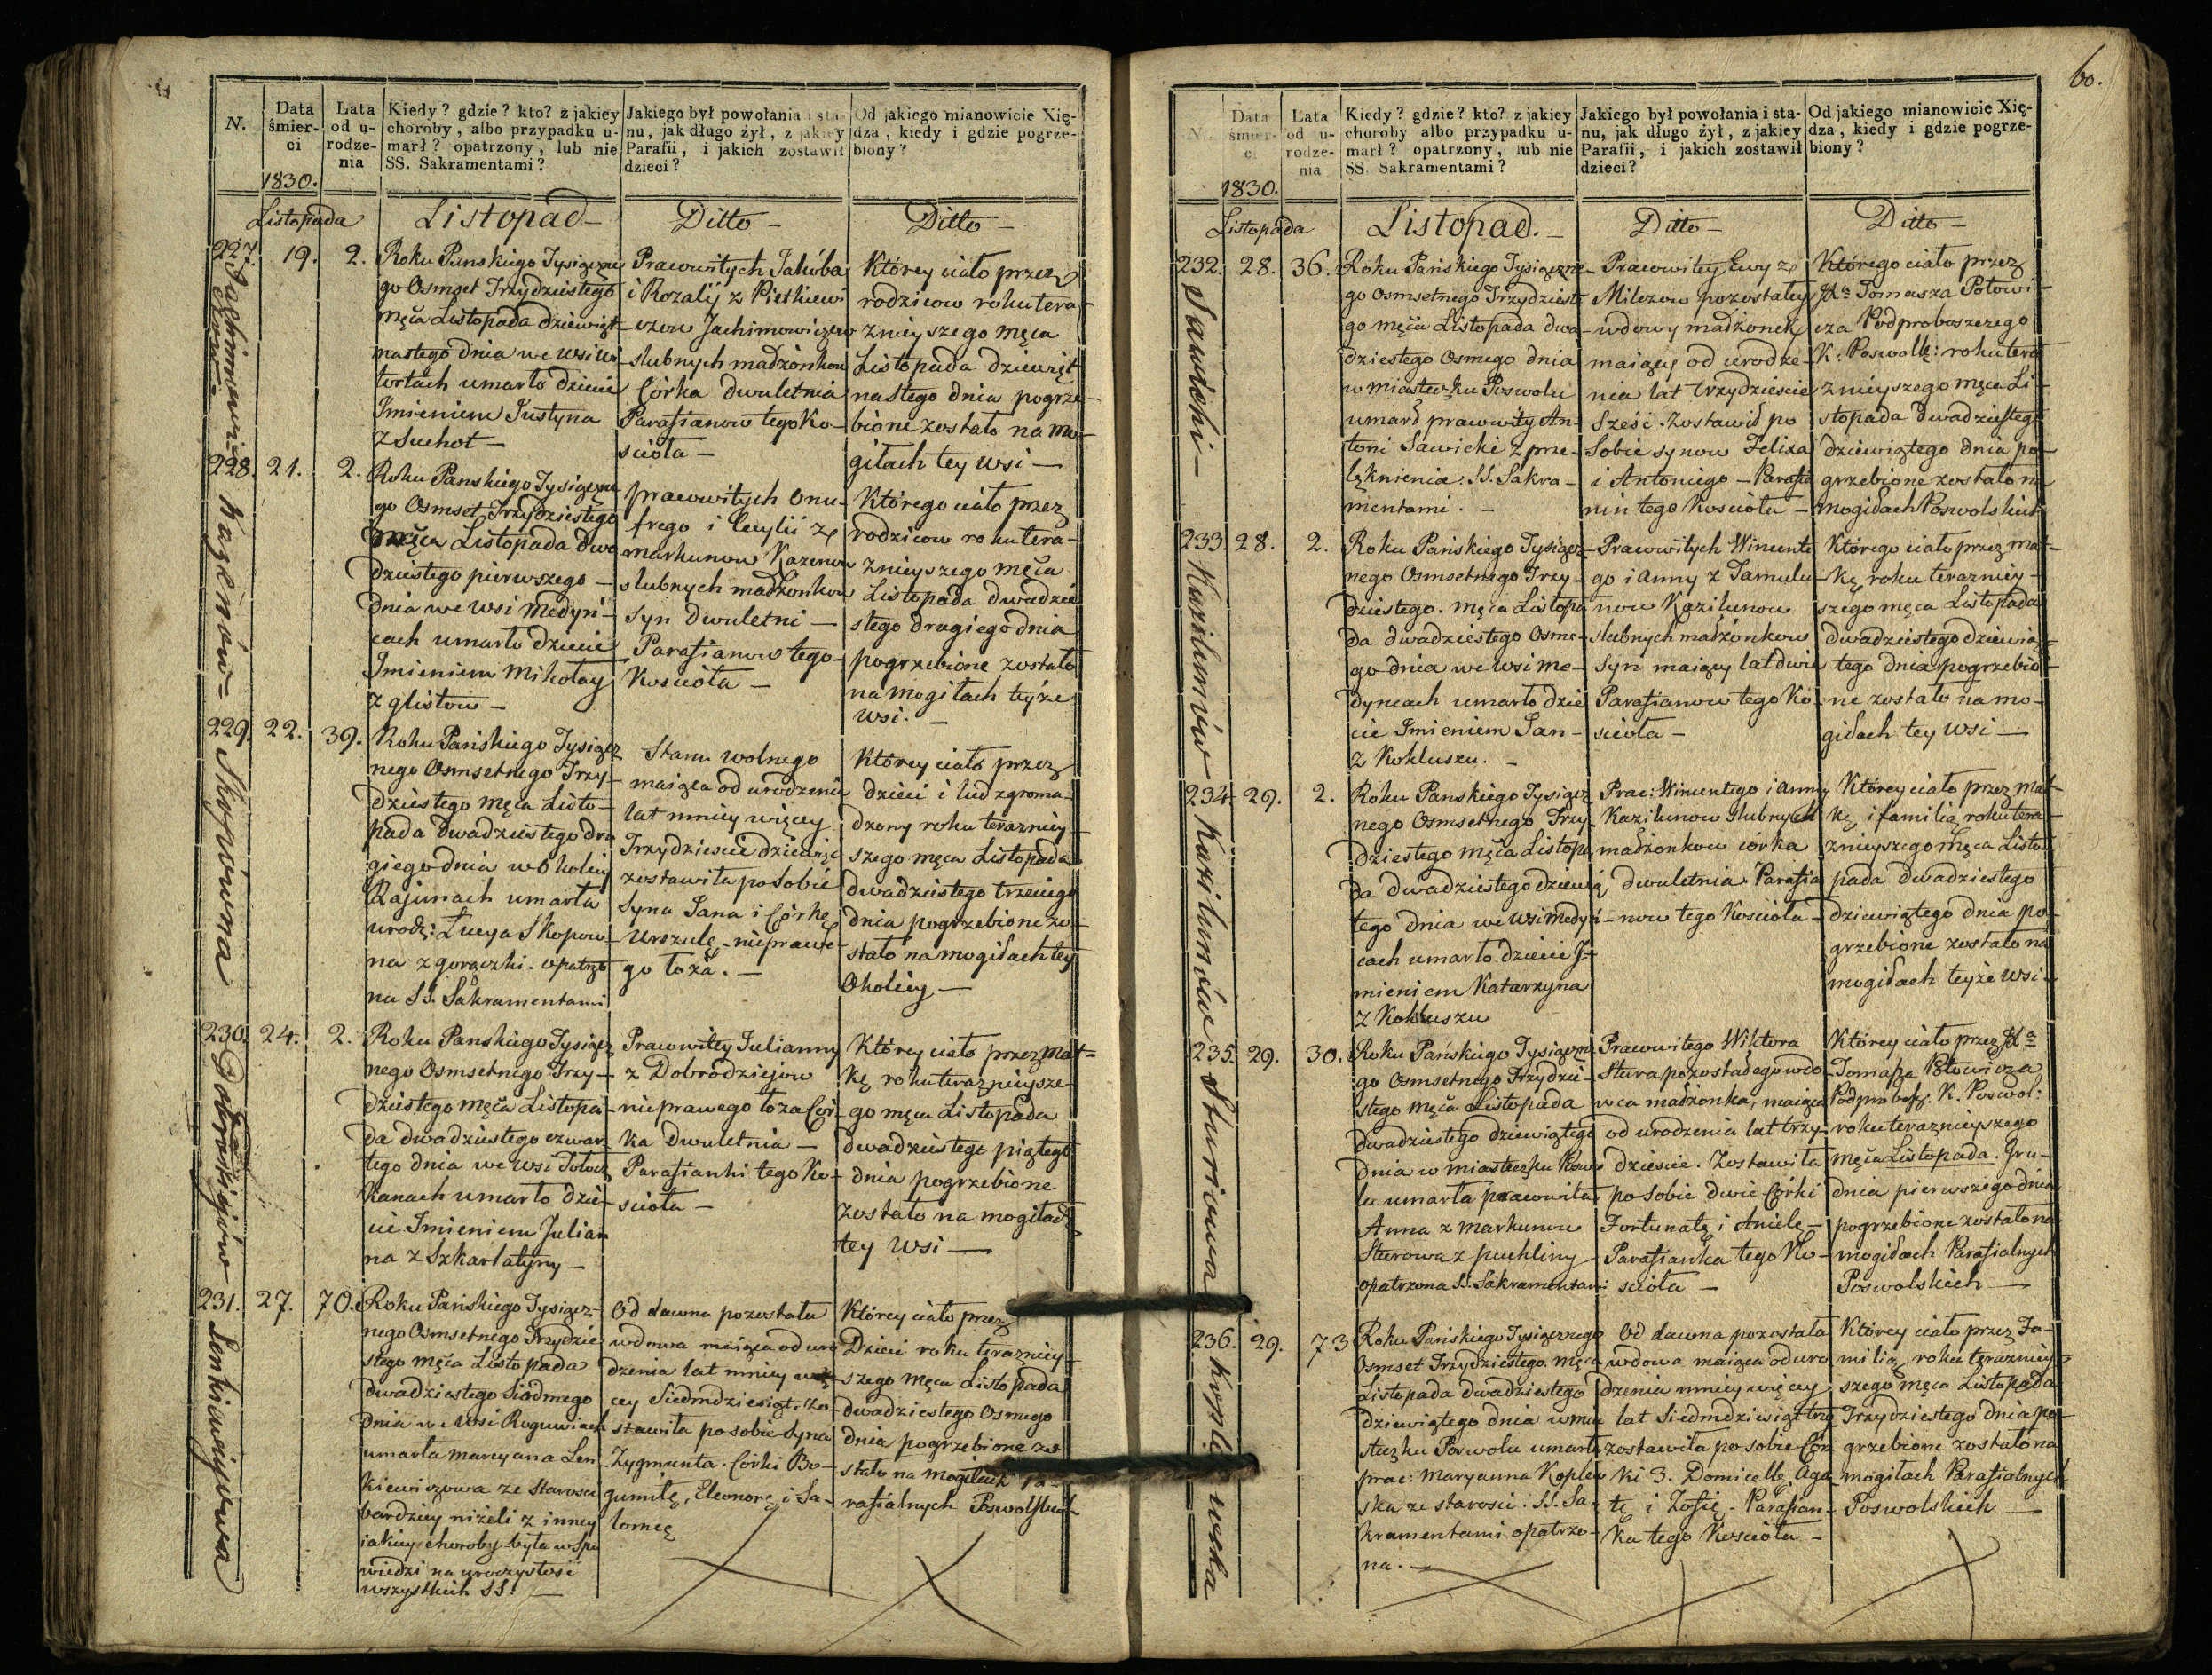 N.
Data śmier-ci
1830.
Lata od u-rodze-nia
Kiedy? gdzie? kto? z jakiey
choroby, albo przypadku u-
marł? opatrzony, lub nie
SS. Sakramentami?
Jakiego był powołania i sta-
nu, jak długo żył, z jakiey
Parafii, i jakich zostawił
dzieci?
Od jakiego mianowicie Xię-
dza, kiedy i gdzie pogrze-
biony?
Listopada
Listopad-
Ditto-
Ditto-
227.
19.
2.
Roku Panskiego Tysiączne
go Osmset Trzydziestego
męca Listopada dziewięt-
nastego dnia we wsi
umarło dziecie
Imieniem Justyna
z Suchot-
Prawowitych Jakóba
i Rozalij z Pietkiewi
czow Jachimowiczow
slubnych madżonkow
Córka dwuletnia
Parafianow tego Ko-
scioła-
Którey ciało przez
rodzicow roku tera-
znieyszego męca
Listopada dziewięt
nastego dnia pogrze-
bione zostało na mo-
giłach tey wsi-
228.
Kazenów
21.
2.
Roku Panskiego Tysiączne
go Osmset Trzydziestego
męca Listopada dwa
dziestego pierwszego-
dnia we wsi Medyń-
cach umarło dziecie
Imieniem Mikołay
z glistow-
prawowitych Onu-
frego i Cecylii z
markunow Kazenow
slubnych madżonkow
Syn dwuletni-
Parafianow tego-
Kościoła-
Którego ciało przez
rodzicow roku tera-
znieyszego męca
Listopada dwadzie
stego drugiego dnia
pogrzebione zostało
na mogiłach teyże
wsi.-
229.
Skopówna
22.
39.
Roku Pańskiego Tysiącz
nego Osmsetnego Trzy-
dziestego męca Listo-
pada dwadziestego dru
giego dnia w Okolicy
Rajunach umarła
urodz: Łucya Skopow-
na z gorączki. opatrzo
na SS. Sakramentami
Stanu wolnego
maiąca od urodzenia
lat mniey więcey
Trzydziescie dziewięć
zostawiła po Sobie
Syna Jana i Córkę
Urszulę-nieprawe-
go łoża.-
Którey ciało przez
dzieci i lud zgroma-
dzony roku terazniey-
szego męca Listopada
dwadziestego trzeciego
dnia pogrzebione zo-
stało na mogiłach tey
Okolicy-
230.
Dobrodziejów
24.
2.
Roku Panskiego Tysiącz
nego Osmsetnego Trzy-
dziestego męca Listopa-
da dwadziestego czwar
tego dnia we wsi
umarło dzie-
cie Imieniem Julian
na z Szkarłatyny-
Prawowitey Julianny
z Dobrodziejow
nieprawego łoża Cór-
ka dwuletnia-
Parafianki tego Ko-
scioła-
Którey ciało przez mat-
kę roku teraznieysze-
go męca Listopada
dwadziestego piątego
dnia pogrzebione
zostało na mogiłach
tey wsi-
231.
27.
70.
Roku Pańskiego Tysiącz-
nego Osmsetnego Trzydzie
stego męca Listopada
dwadziestego Siodmego
dnia we wsi Roguwiach
umarła Maryana Len-
kiewiczowa ze Starosci
bardziey niżeli z inney
iakiey choroby była w Spo
wiedzi na uroczystosć
wszystkich SS:-
Od dawna pozostała
wdowa maiąca od uro
dzenia lat mniey wię
cey Siedmdziesiąt. Zo-
stawiła po sobie Syna
Zygmunta. Corki Bo-
gumiłę, Eleonorę i Sa-
lomeę
Którey ciało przez
Dzieci roku teraznicy-
szego męca Listopada
dwadziestego Osmego
dnia pogrzebione zo-
stało na mogiłach Pa-
rafialnych Poswolskich
60.
N.
Data śmier-ci
1830.
Lata od u-rodze-nia
Kiedy? gdzie? kto? z jakiey
choroby albo przypadku u-
marł? opatrzony, lub nie
SS. Sakramentami?
Jakiego był powołania i sta-
nu, jak długo żył, z jakiey
Parafii, i jakich zostawił
dzieci?
Od jakiego mianowicie Xię-
dza, kiedy i gdzie pogrze-
biony?
Listopada
Listopad.-
Ditto-
Ditto-
232.
Sawicki-
28.
36.
Roku Pańskiego Tysiączne-
go Osmsetnego Trzydzieste
go męca Listopada dwa-
dziestego Osmego dnia
w miasteczku Poswolu
umarł prawowity An-
toni Sawicki z prze-
lęknienia. SS. Sakra-
mentami.-
Prawowitey Ewy z
Milczow pozostałey
wdowy madżonek
maiący od urodze-
nia lat trzydziescie
Sześć. Zostawił po
Sobie synow Felixa
i Antoniego-Parafia
nin tego Kościoła-
Którego ciało przez
Jdu Tomasza Potowi-
cza Podproboszczego
K: Poswolk: roku tera
znieyszego męca Li-
stopada dwadziestego
dziewiątego dnia po-
grzebione zostało na
mogiłach Poswolskich
233.
Kazilunów
28.
2.
Roku Pańskiego Tysiącz-
nego Osmsetnego Trzy-
dziestego. męca Listopa
da dwadziestego Osme-
go dnia we wsi Me-
dyncach umarło dzie
cie Imieniem Jan-
z Kokluszu.-
Prawowitych Wincente
go i Anny z Tamulu-
now Kazilunow
slubnych małżonkow
Syn maiący lat dwie
Parafianow tego Ko-
scioła-
Którego ciało przez mat-
kę roku teraznicy-
szego męca Listopada
dwadziestego dziewią-
tego dnia pogrzebio-
ne zostało na mo-
giłach tey wsi-
234.
Kazilunów
29.
2.
Roku Panskiego Tysiącz
nego Osmsetnego Trzy-
dziestego męca Listopa
da dwadziestego dziewią
tego dnia we wsi Medyń-
cach umarło dziecie I-
mieniem Katarzyna
z Kokluszu
Praw: Wincentego i Anny
Kazilunow slubnych
madżonkow córka
dwuletnia Parafia
now tego Kościoła-
Którey ciało przez mat-
kę i familią roku tera-
znieyszego męca Listo-
pada dwadziestego
dziewiątego dnia po-
grzebione zostało na
mogiłach teyże wsi-
235.
Sturiowa
29.
30.
Roku Pańskiego Tysiączne
go Osmsetnego Trzydzie-
stego męca Listopada
dwadziestego dziewiątego
dnia w miasteczku Poswo
lu umarła prawowita
Anna z Markunow
Sturowa z puchliny
opatrzona SS. Sakramentami
Prawowitego Wiktora
Stura pozostałego wdo-
wca małżonka, maiąca
od urodzenia lat trzy-
dziescie. Zostawiła
po sobie dwie Córki
Fortunatę i Anielę-
Parafianka tego Ko-
scioła-
Którey ciało przez Jdu
Tomasza Potowicza
Podprobosz. K. Poswol:
roku teraznieyszego
męca Listopada. Gru-
dnia pierwszego dnia
pogrzebione zostało na
mogiłach Parafialnych
Poswolskich-
236.
Koplewska
29.
73
Roku Pańskiego Tysiącznego
Osmset Trzydziestego. męca
Listopada dwadziestego
dziewiątego dnia w mia
steczku Poswolu umarła
praw: Maryanna Koplew
ska ze starosci. SS. Sa-
kramentami opatrzo-
na.-
Od dawna pozostała
wdowa maiąca od uro
dzenia mniey więcey
lat Siedmdziesiąt trzy
zostawiła po sobie Cór
ki 3. Domicellę, Aga
tę i Zofię-Parafian-
ka tego Kościoła-
Którey ciało przez Fa-
milią roku teraznicy-
szego męca Listopada
Trzydziestego dnia po-
grzebione zostało na
mogiłach Parafialnych
Poswolskich-